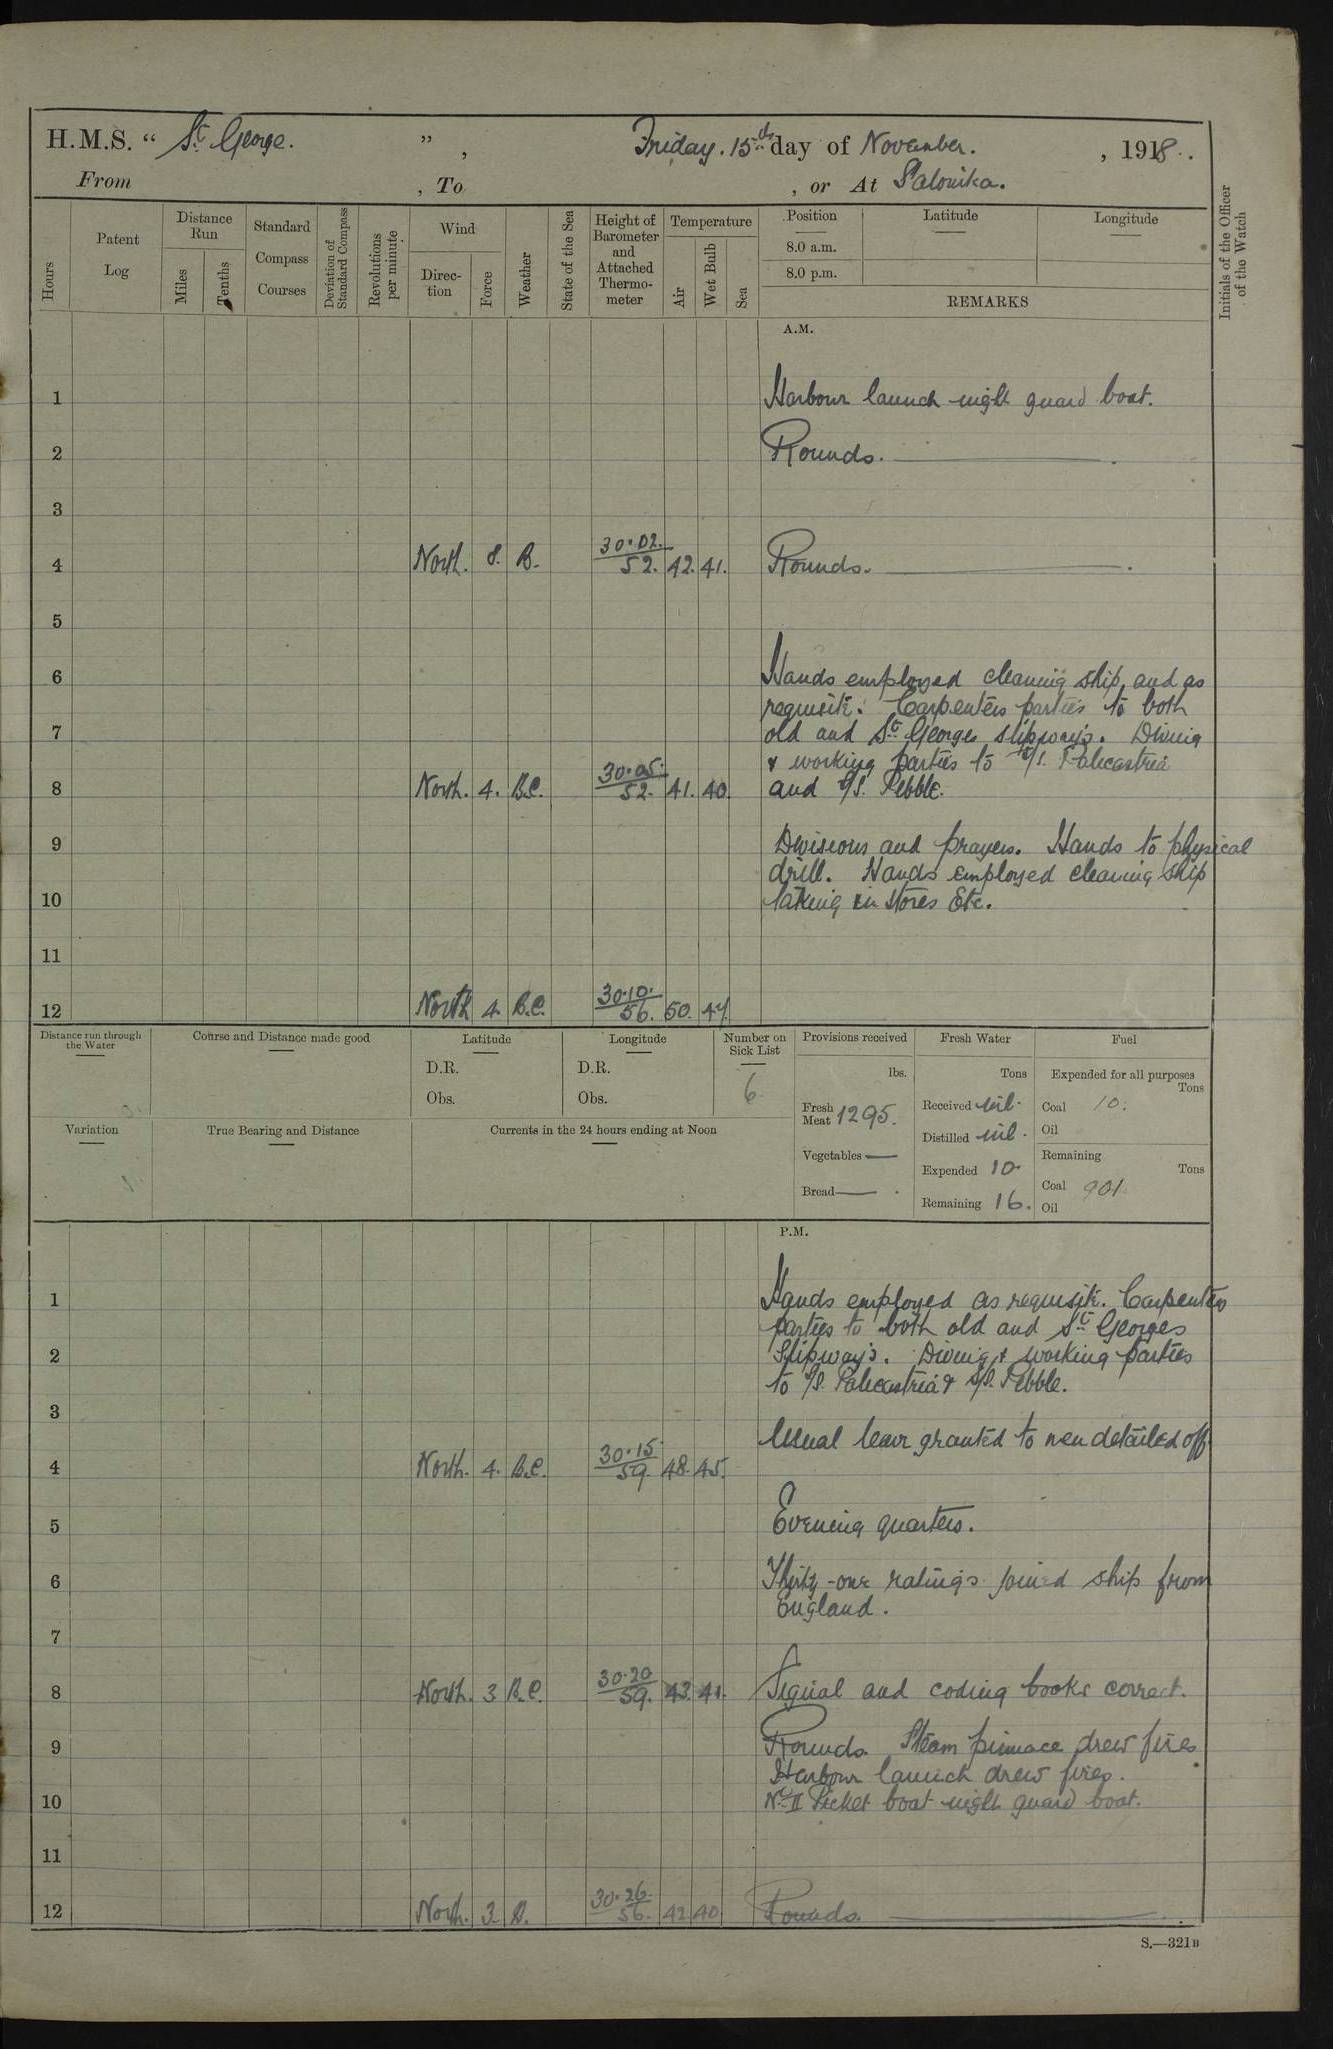 H.M.S. “ St. George. ” , Friday. 15th day of November. , 1918.
From , To , or At Salonika.
Hours
Patent Log
Distance Run
Miles
Tenths
Standard Compass Courses
Deviation of Standard Compass
Revolutions per minute
Wind
Direction
Force
Weather
State of the Sea
Height of Barometer and Attached Thermometer
Temperature
Air
Wet Bulb
Sea
Position
8.0 a.m.
8.0 p.m.
Latitude
Longitude
REMARKS
Initials of the Officer of the Watch
A.M.
1 Harbour launch night guard boat.
2 Rounds.
3
4 North. 8. B. 30.02. 52. 42. 41. Rounds.
5
6 Hands employed cleaning ship, and as
requisite. Carpenters parties to both
7 old and St. Georges slipways. Diving
& working parties to S/S. Palicastria
8 North. 4. B.C. 30.05. 52. 41. 40. and S/S. Pebble.
9 Divisions and prayers. Hands to physical
drill. Hands employed cleaning ship
10 taking in stores Etc.
11
12 North 4. B.C. 30.10. 56. 50. 47.
Distance run through the Water
Course and Distance made good
Latitude
D.R.
Obs.
Longitude
D.R.
Obs.
Number on Sick List
6
Provisions received
lbs.
Fresh Meat 1295.
Vegetables —
Bread — .
Fresh Water
Tons
Received nil.
Distilled nil.
Expended 10.
Remaining 16.
Fuel
Expended for all purposes
Tons
Coal 10.
Oil
Remaining
Tons
Coal 901.
Oil
Variation
True Bearing and Distance
Currents in the 24 hours ending at Noon
P.M.
1 Hands employed as requisite. Carpenters
parties to both old and St. Georges
2 Slipways. Diving & working parties
to S/S. Palicastria & S/S. Pebble.
3
Usual leave granted to men detailed off
4 North. 4. B.C. 30.15. 59. 48. 45.
5 Evening quarters.
6 Thirty-one ratings joined ship from
England.
7
8 North. 3 B.C. 30.20 59. 43. 41. Signal and coding books correct.
9 Rounds. Steam pinnace drew fires
Harbour launch drew fires.
10 No. II Picket boat night guard boat.
11
12 North. 3. B. 30.26. 56. 42 40 Rounds.
S.—321B